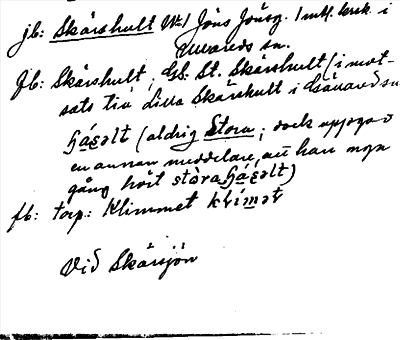 jb: Skärshult No 1 Jöns Jönsg. 1 mtl. krsk. i
Gunnareds sn.
Jb: Skärshult, GS: St. Skärshult (i mot-
sats till Lilla Skärshult i Gunnareds sn
hą́ʂəlt (aldrig Stora; dock uppgav
en annan meddelare, att han någon
gång hört stòra hą́ʂəlt)
fb: torp: Klimmet klímət
Vid Skärsjön